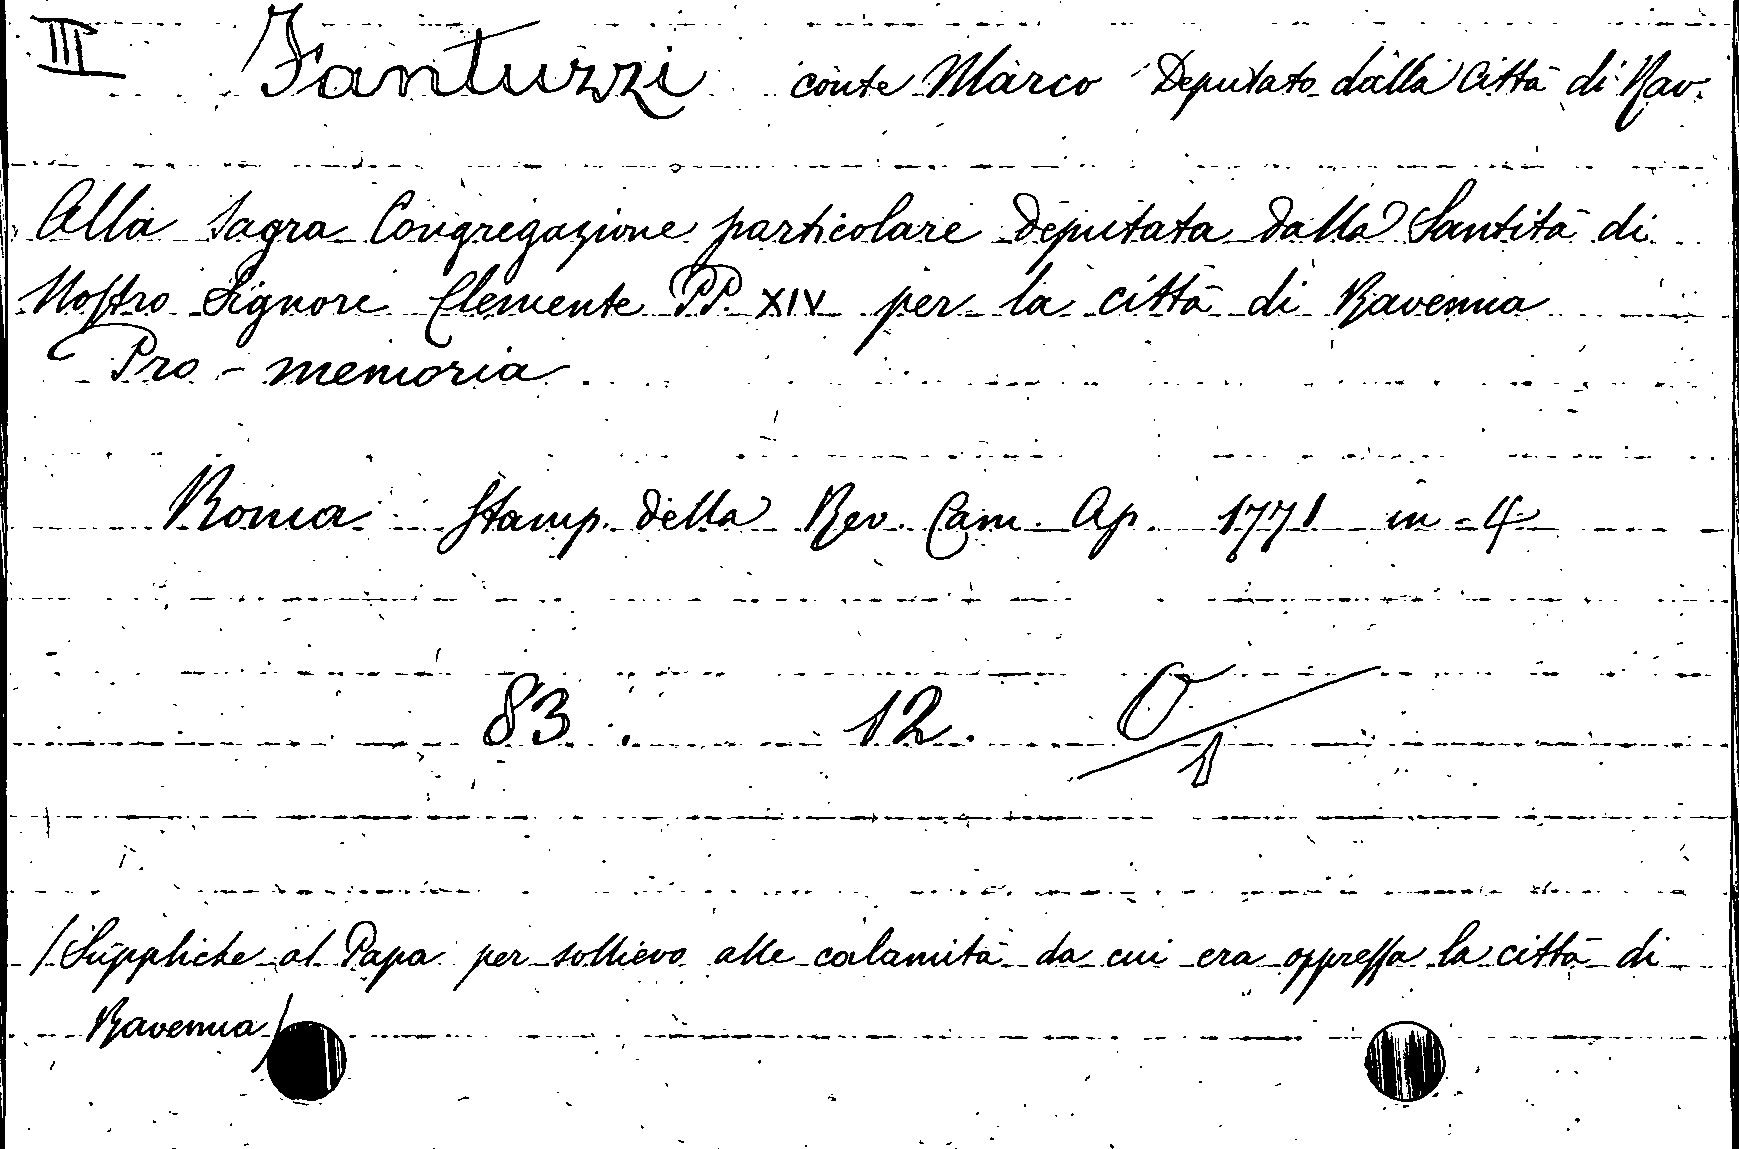 III Fantuzzi conte Marco Deputato dalla Città di Rav.
Alla Sagra Congregazione particolare deputata dalla Santità di
Nostro Signore Clemente PP. XIV per la città di Ravenna
Pro-memoria
Roma Stamp. della Rev. Cam. Ap. 1771 in-4
83. 12. O/1
/Suppliche al Papa per sollievo alle calamità da cui era oppressa la città di
Ravenna/